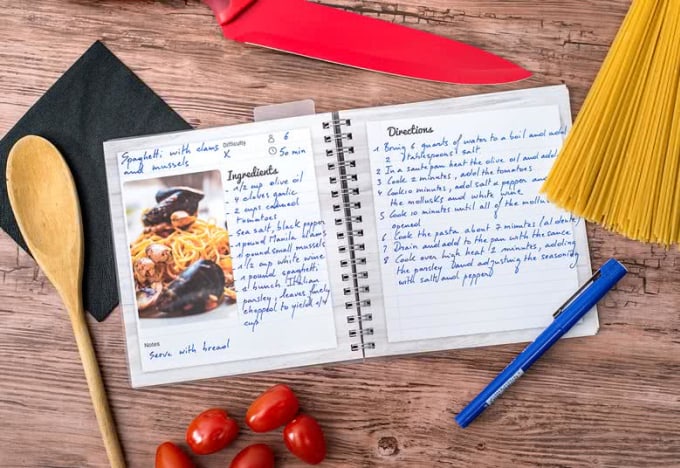 Spaghetti with clams
and mussels
Difficulty
X
6
50 min
Ingredients
- 1/2 cup olive oil
- 4 cloves garlic
- 2 cups canned
tomatoes
Sea salt, black pepper
1 pound Manila clams
1 pound small mussels
1/2 cup white wine
1 pound spaghetti
a bunch Italian
parsley, leaves finely
chopped to yield 1/4
cup
Notes
Serve with bread
Directions
1 Bring 6 quarts of water to a boil and add
2 tablespoons salt
2 In a saute pan heat the olive oil and add
3 Cook 2 minutes, add the tomatoes
4 Cook 10 minutes, add salt & pepper and
the mollusks and white wine
5 Cook 10 minutes until all of the mollusks
opened
6 Cook the pasta about 7 minutes (al dente)
7 Drain and add to the pan with the sauce
8 Cook over high heat 2 minutes, adding
the parsley and adjusting the seasoning
with salt and pepper